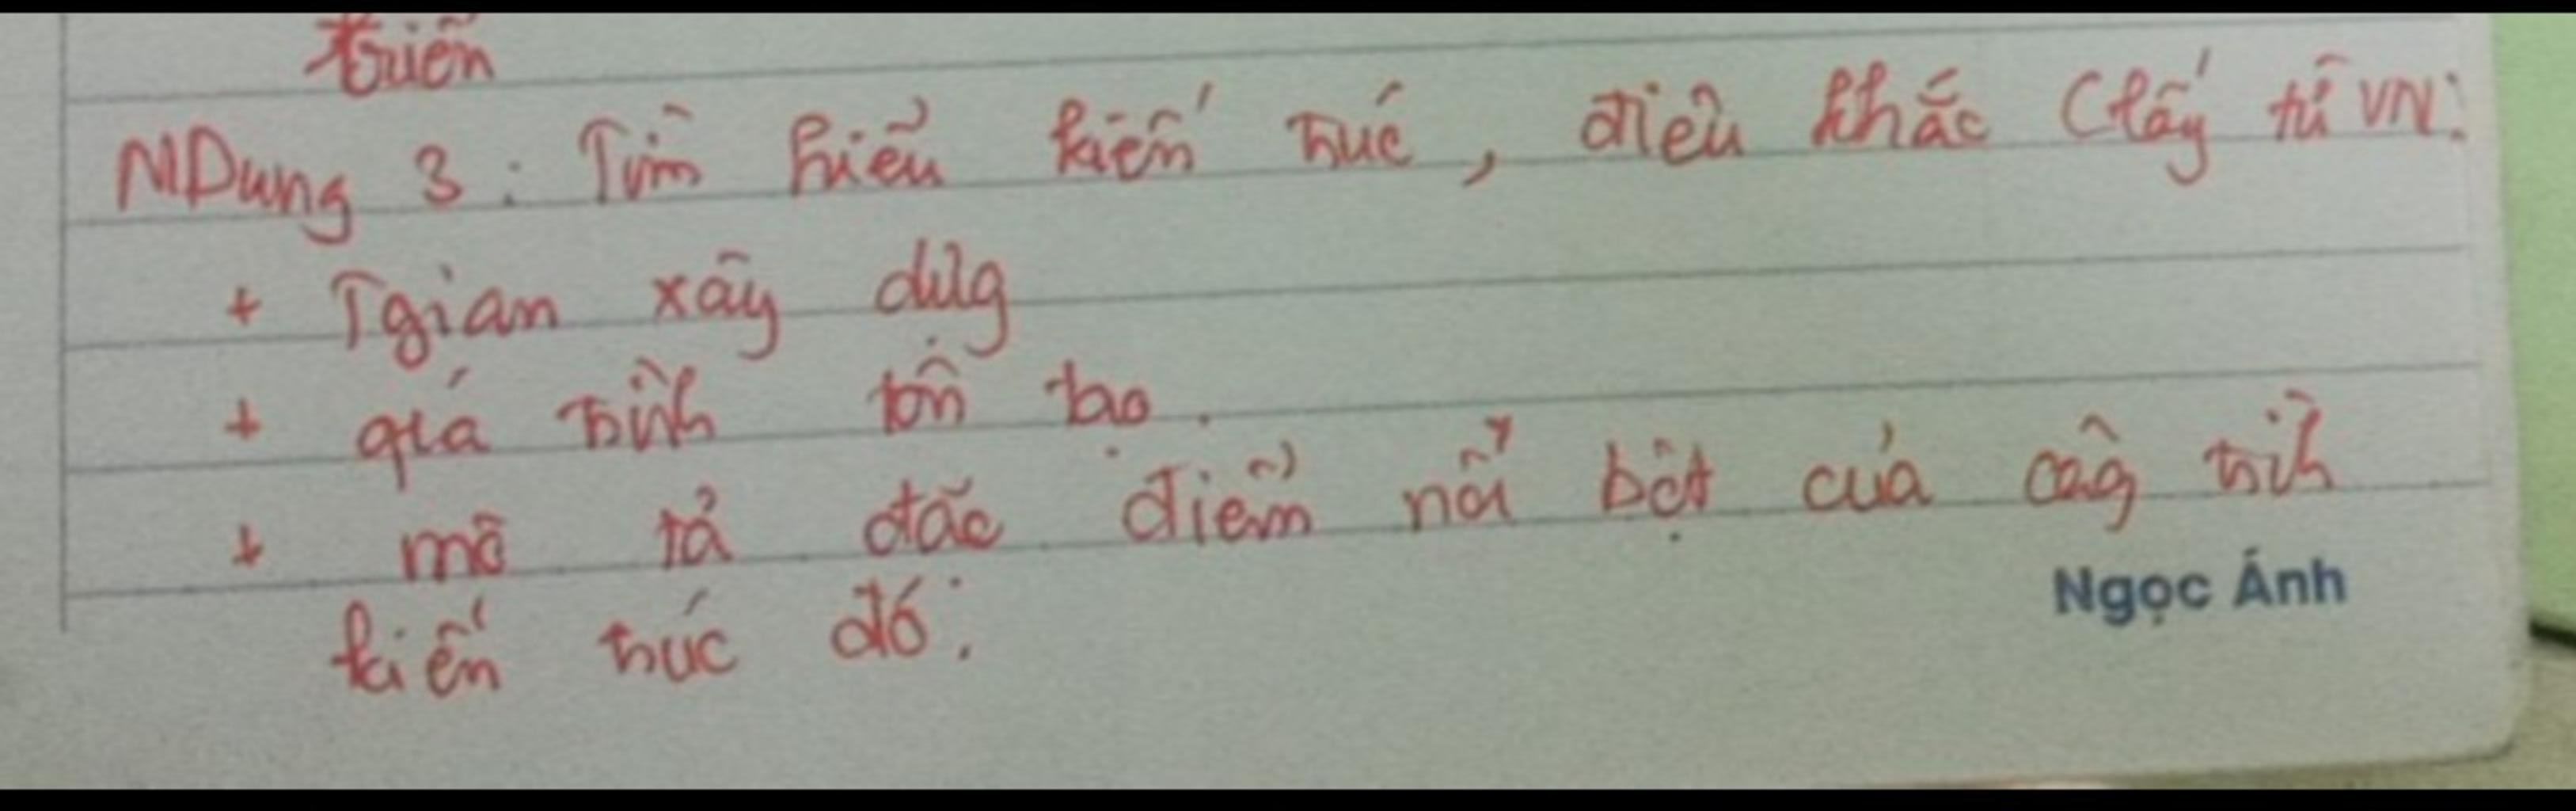 triển
NDung 3: Tìm hiểu kiến trúc, điêu khắc (lấy từ VN:
+ Tgian xây dựg
+ quá trình tôn tạo.
+ mô tả đặc điểm nổi bật của côg trìh
Ngọc Ánh
kiến trúc đó.